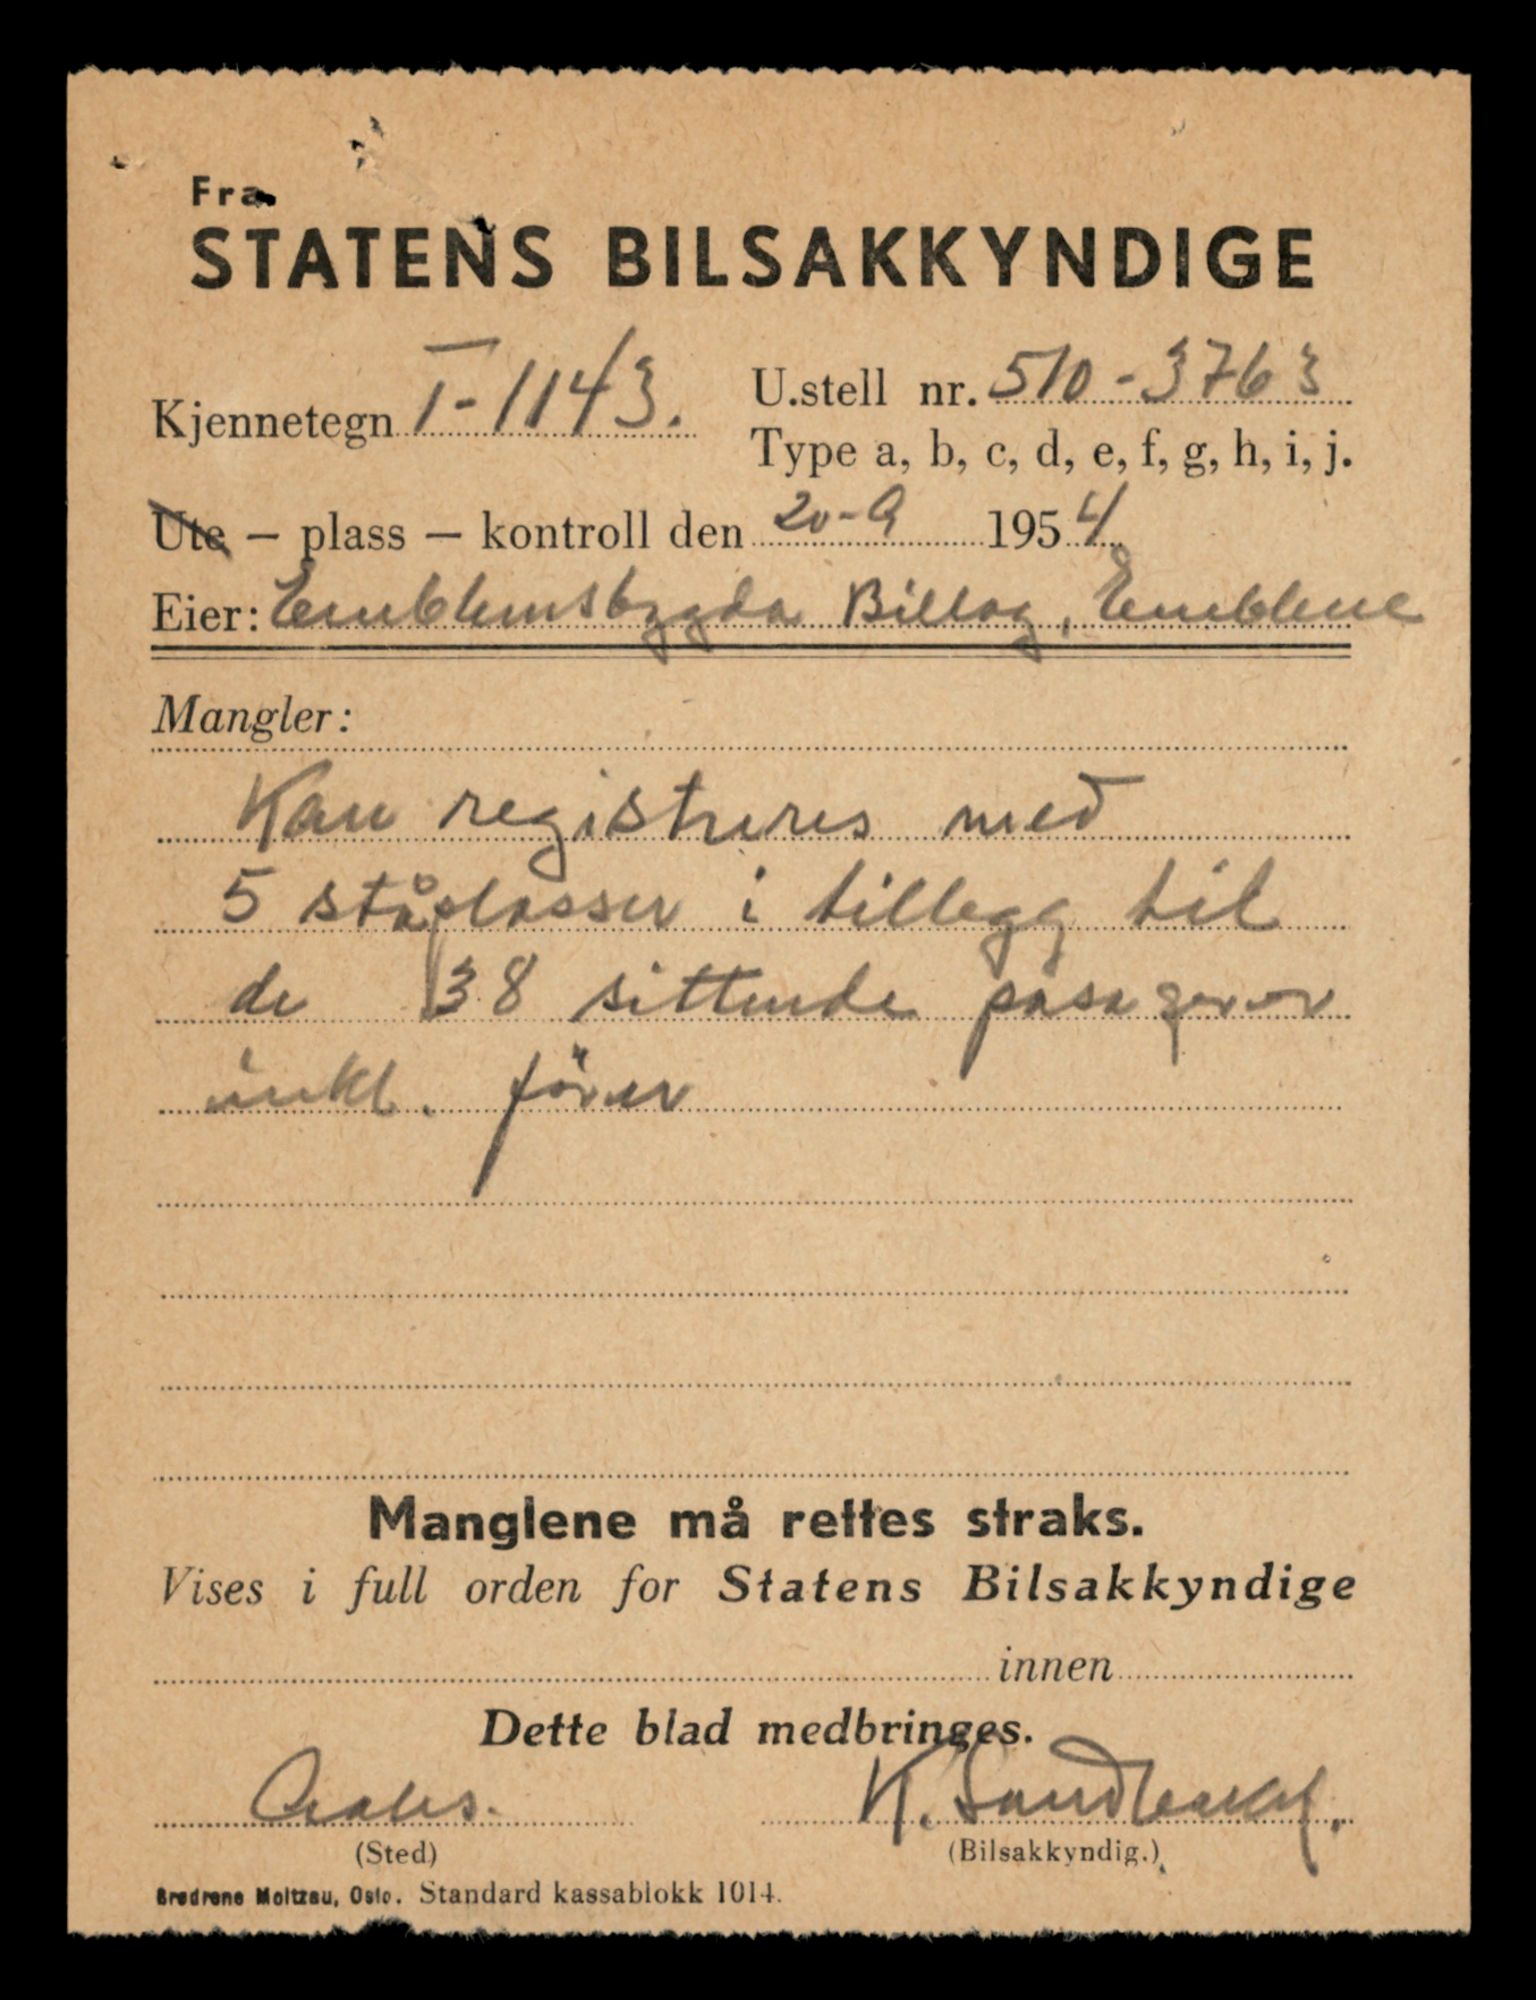 Fra
STATENS BILSAKKYNDIGE
Kjennetegn T-1143. U.stell nr. 510-3763
Type a, b, c, d, e, f, g, h, i, j.
Ute – plass – kontroll den 20-9 1954
Eier: Emblemsbygda Billag, Embleme
Mangler:
Kan registreres med
5 ståplasser i tillegg til
de 38 sittende pasagerer
inkl. förer
Manglene må rettes straks.
Vises i full orden for Statens Bilsakkyndige
innen
Dette blad medbringes.
K.
(Sted) (Bilsakkyndig.)
Brødrene Moltzau, Oslo. Standard kassablokk 1014.